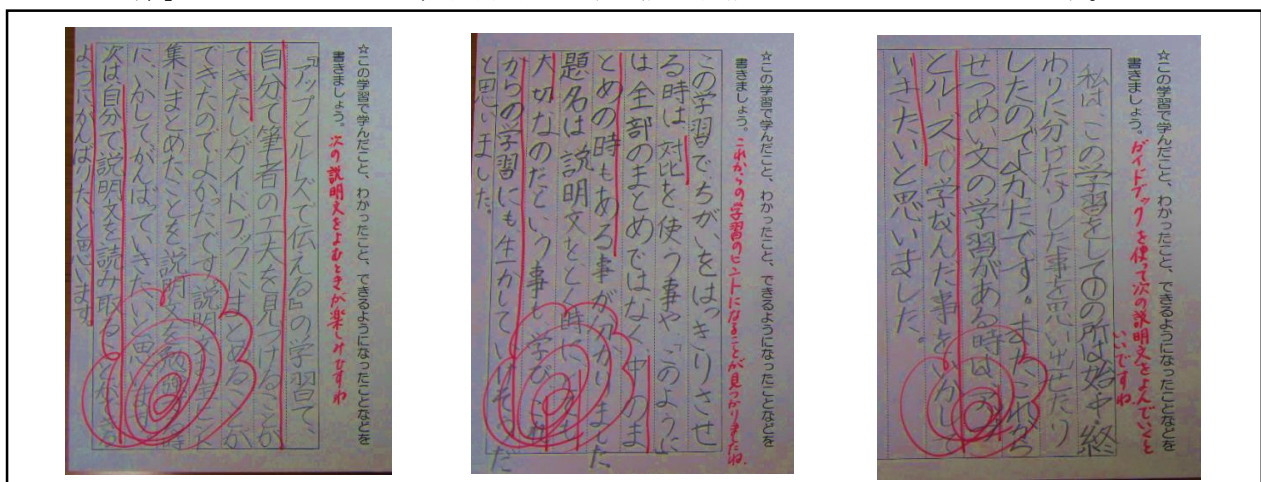 ☆この学習で学んだこと、わかったこと、できるようになったことなどを
書きましょう。次の説明文をよむときが楽しみですね
「アップとルーズで伝える」の学習で、
自分で筆者の工夫を見つけることが
できたしガイドブックにまとめることが
できたのでよかったです。説明文
集にまとめたことを、説明文を勉強する時
に、いかして、がんばっていきたいと思います
次は、自分で、説明文を読み取る
ようにがんばりたいと思います
☆この学習で学んだこと、わかったこと、できるようになったことなどを
書きましょう。これからの学習のヒントになることが見つかりましたね。
この学習でちがいをはっきりさせ
る時は、対比を、使う事や「このように
は全部のまとめではなく中のま
とめの時もある事が分かりました
題名は説明文をとく時に
大切なのだという事も学び
からの学習にも、生かしていけそうだ
と思いました。
☆この学習で学んだこと、わかったこと、できるようになったことなどを
書きましょう。ガイドブックを使って次の説明文をよんでいくと
いいですね
私は、この学習をして①の所は始中終
わりに分けたりした事を思い出せたり
したのでよかったです。またこれから
せつめい文の学習がある時は、アップ
とルーズで学なんだ事をいかして
いきたいと思いました。